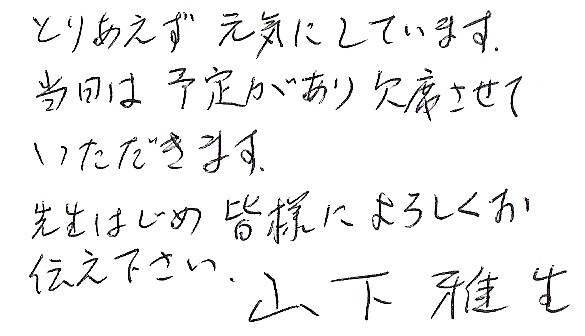 とりあえず 元気にしています.
当日は 予定があり 欠席させて
いただきます.
先生はじめ 皆様によろしくお
伝え下さい.
山下 雅生